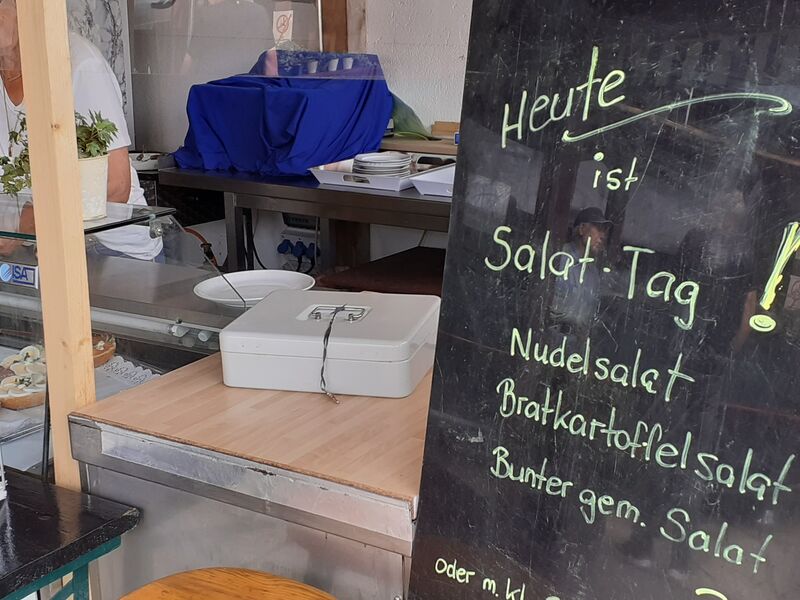 Heute
ist
Salat-Tag !
Nudelsalat
Bratkartoffelsalat
Bunter gem. Salat
oder m. kl.
ISA